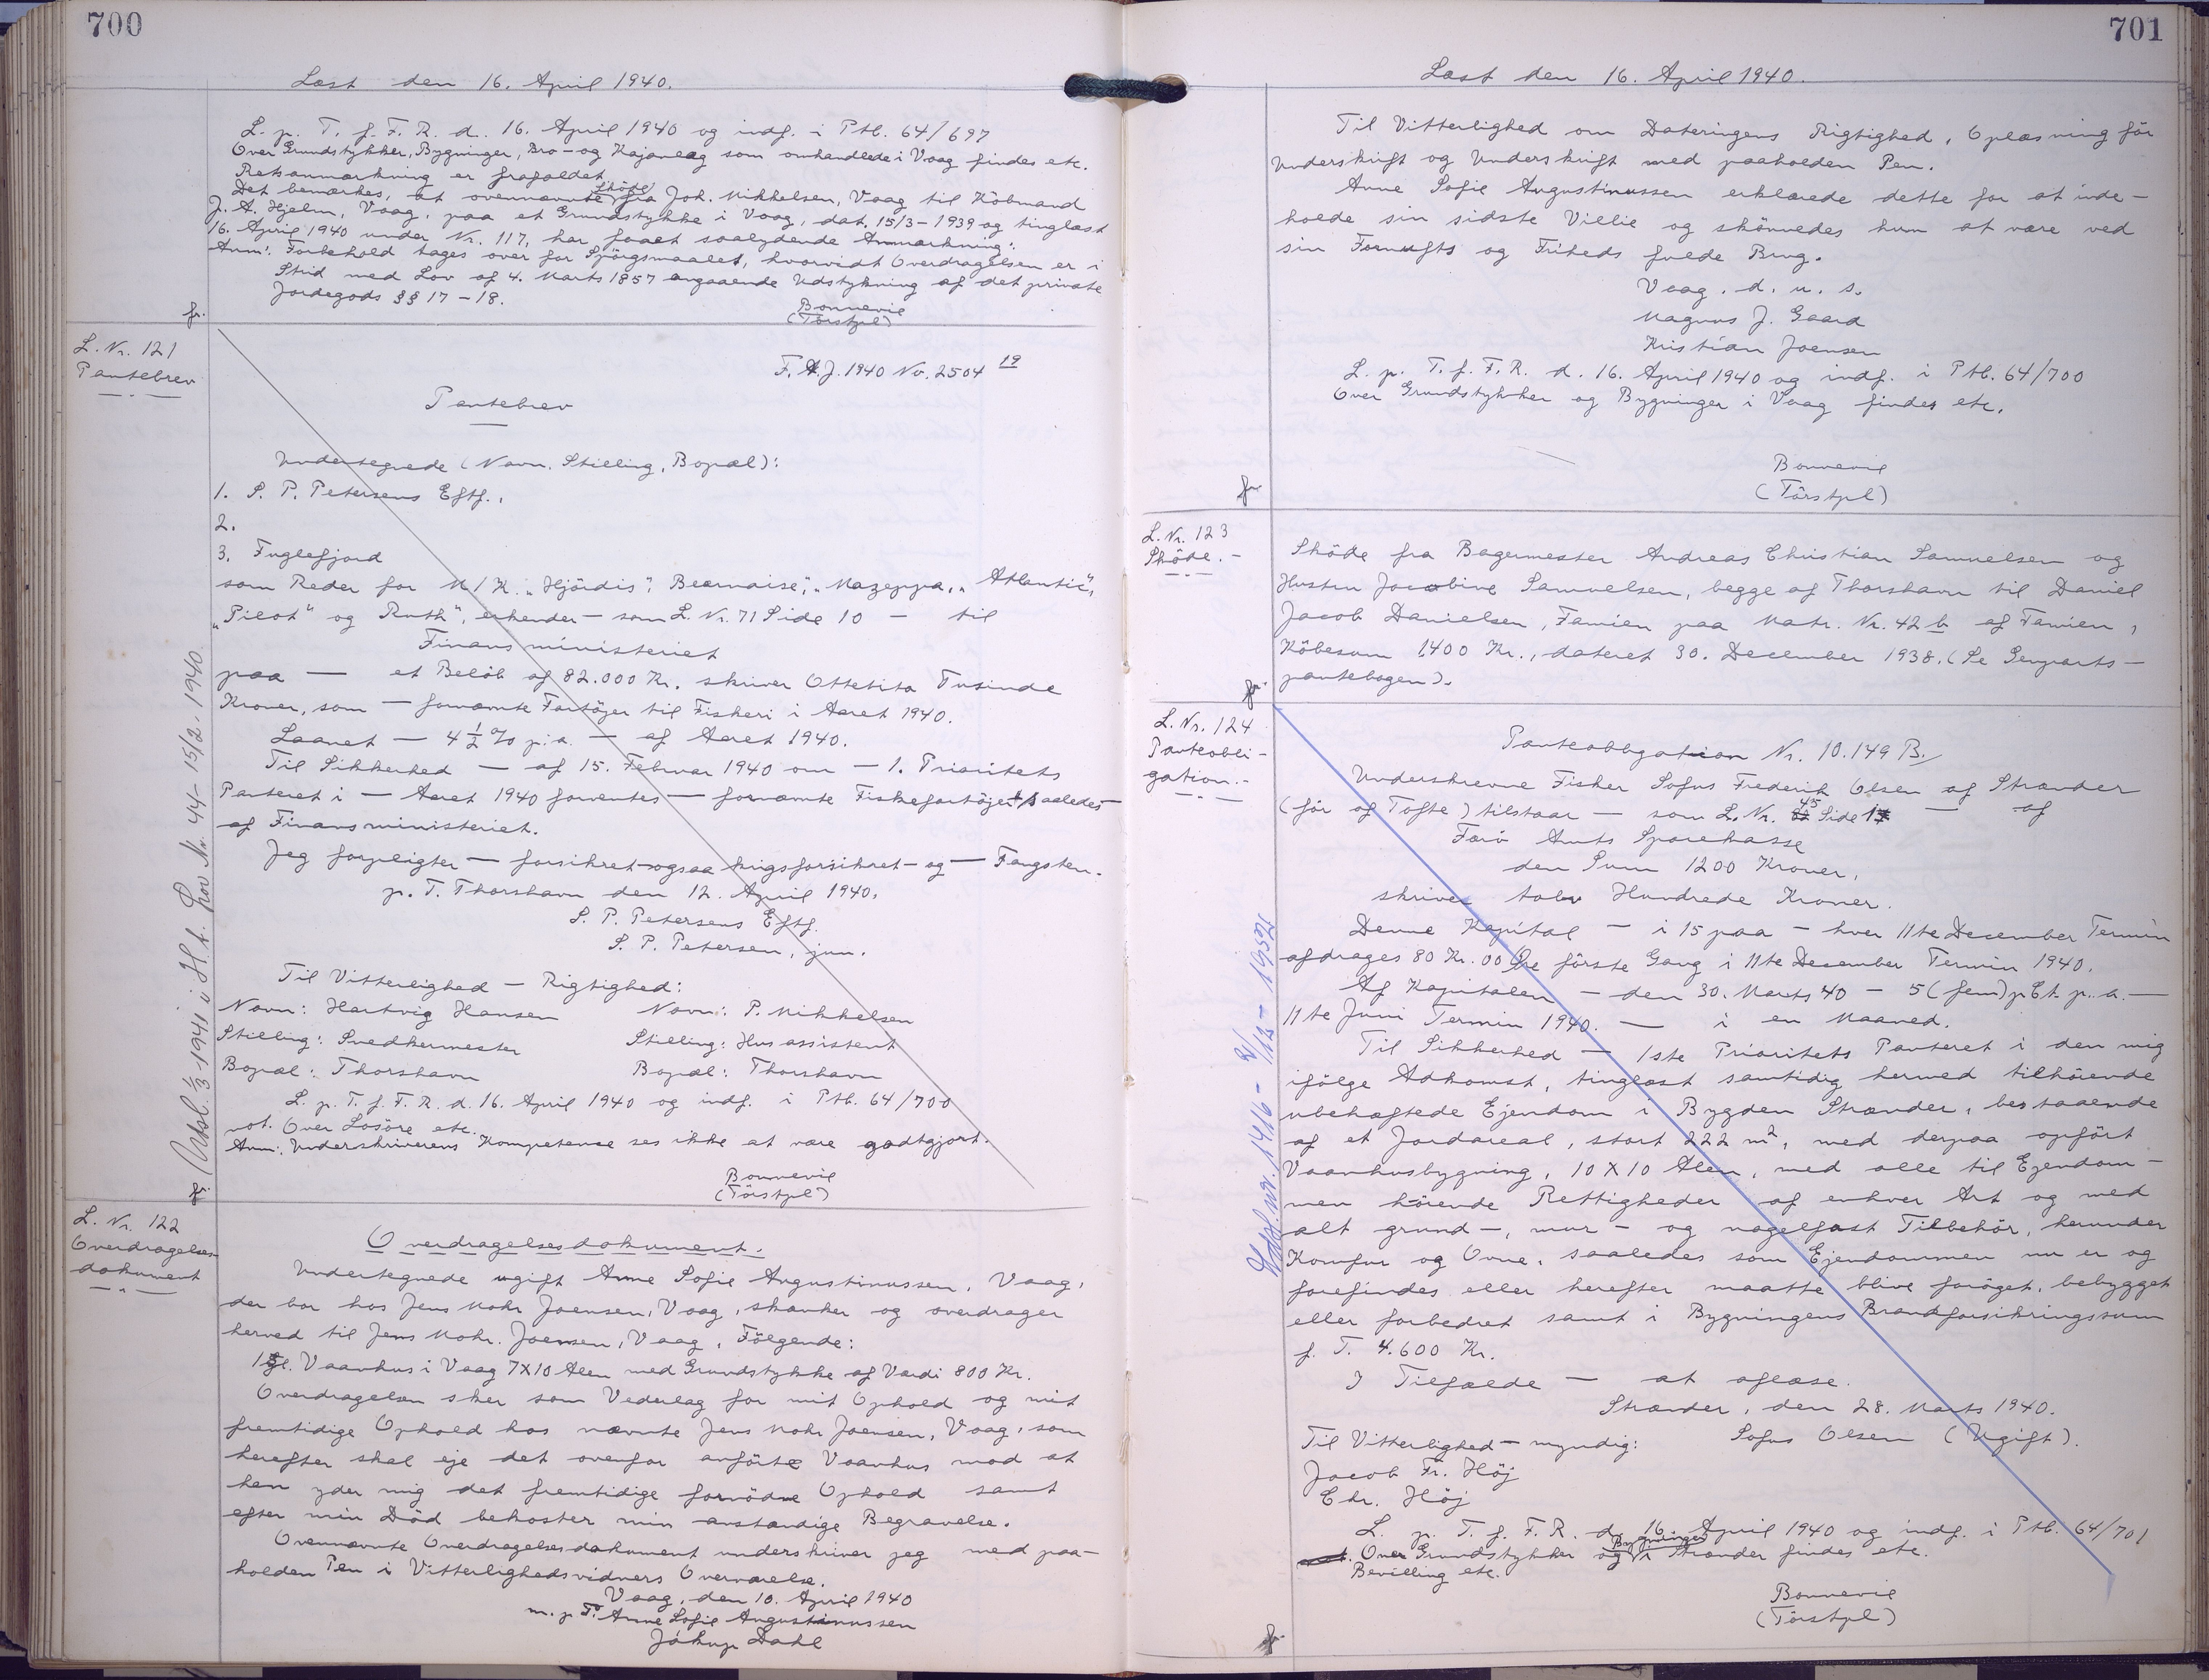 700
Læst den 16. April 1940.
L. p. T. f. F. R. d. 16. April 1940 og indf. i Ptb. 64/697
Over Grundstykker, Bygninger, Bro- og Kajanlæg som omhandlede i Vaag findes etc.
Retsanmærkning er frafaldet
Det bemærkes, at ovennævnte Skøde fra Joh. Mikkelsen, Vaag til Köbmand
J. A. Hjelm, Vaag, paa et Grundstykke i Vaag, dat. 15/3-1939 og tinglæst
16. April 1940 under Nr. 117, har faaet saalydende Anmærkning:
Anm: Forbehold tages over for Spörgsmaalet, hvorvidt Overdragelsen er i
Strid med Lov af 4. Marts 1857 angaaende Udstykning af det private
Jordegods §§ 17-18.
Bonnevie
(Törstpl)
fr.
L. Nr. 121
Pantebrev
F. A. J. 1940 No. 2504 19
Pantebrev
Undertegnede (Navn, Stilling, Bopæl):
1. S. P. Petersens Eftf.,
2.
3. Fuglefjord
som Reder for M/K. „Hjördis", Bearnaise", „Mazeppa, „Atlantic",
„Pilot" og Ruth", erkender — som L. Nr. 71 Side 10 — til
Finansministeriet
paa — et Belöb af 82.000 Kr. skriver Ottetito Tusinde
Kroner, som — fornævnte Fartöjer til Fiskeri i Aaret 1940.
Laanet — 4 1/2 % p.a. — af Aaret 1940.
Til Sikkerhed — af 15. Februar 1940 om — 1. Prioritets
Panteret i — Aaret 1940 forventes — fornævnte Fiskefartöjer saaledes
af Finansministeriet.
Jeg forpligter — forsikret — ogsaa krigsforsikret — og — Fangsten.
p. T. Thorshavn den 12. April 1940.
S. P. Petersens Eftf.
S. P. Petersen, jun.
Til Vitterlighed — Rigtighed:
Navn: Hartvig Hansen Navn: P. Mikkelsen
Stilling: Snedkermester Stilling: Husassistent
Bopæl: Thorshavn Bopæl: Thorshavn
L. p. T. f. F. R. d. 16. April 1940 og indf. i Ptb. 64/700
not. Over Lösöre etc.
Anm: Underskriverens Kompetence ses ikke at være godtgjort.
Bonnevie
(Törstpl)
fr.
Udsl. 1/3-1941 i H. t. Lov Nr. 44-15/2-1940
L. Nr. 122
Overdragelses-
dokument
Overdragelsesdokument.
Undertegnede ugift Anne Sofie Augustinussen, Vaag,
der bor hos Jens Mohr Joensen, Vaag, skænker og overdrager
herved til Jens Mohr. Joensen, Vaag, Fölgende:
1 gl. Vaanhus i Vaag 7X10 Alen med Grundstykke af Værdi 800 Kr.
Overdragelsen sker som Vederlag for mit Ophold og mit
fremtidige Ophold hos nævnte Jens Mohr Joensen, Vaag, som
herefter skal eje det ovenfor anförte Vaanhus mod at
han yder mig det fremtidige fornödne Ophold samt
efter min Död bekoster min anstændige Begravelse.
Ovennævnte Overdragelsesdokument underskriver jeg med paa-
holden Pen i Vitterlighedsvidners Overværelse.
Vaag, den 10. April 1940
m. p. F. Anne Sofie Augustinussen
Jákup Dahl
701
Læst den 16. April 1940.
Til Vitterlighed om Dateringens Rigtighed, Oplæsning för
Underskrift og Underskrift med paaholden Pen.
Anne Sofie Augustinussen erklærede dette for at inde-
holde sin sidste Villie og skönnedes hun at være ved
sin Fornufts og Friheds fulde Brug.
Vaag. d. u. s.
Magnus J. Gaard
Kristian Joensen
L. p. T. f. F. R. d. 16. April 1940 og indf. i Ptb. 64/700
Over Grundstykker og Bygninger i Vaag findes etc.
Bonnevie
(Törstpl)
fr.
L. Nr. 123
Sköde.-
Sköde fra Bagermester Andreas Christian Samuelsen og
Hustru Jacobine Samuelsen, begge af Thorshavn til Daniel
Jacob Danielsen, Famien paa Matr. Nr. 42 b af Famien,
Köbesum 1400 Kr., dateret 30. December 1938. (Se Genparts-
pantebogen).
fr.
L. Nr. 124
Panteobli-
gation.-
Panteobligation Nr. 10.149 B.
Underskrevne Fisker Sofus Frederik Olsen af Strænder
(för af Tofte) tilstaar — som L. Nr. 45 Side 1 — af
Færö Amts Sparekasse
den Sum 1200 Kroner,
skriver tolv Hundrede Kroner.
Denne Kapital — i 15 paa — hver 11te December Termin
afdrages 80 Kr. 00 Øre förste Gang i 11te December Termin 1940.
Af Kapitalen — den 30. Marts 40 — 5 (fem) pCt. p. a. —
11te Juni Termin 1940. — i en Maaned.
Til Sikkerhed — 1ste Prioritets Panteret i den mig
ifölge Adkomst, tinglæst samtidig hermed tilhörende
ubehæftede Ejendom i Bygden Strænder, bestaaende
af et Jordareal, stort 222 m², med derpaa opfört
Vaanhusbygning, 10 X 10 Alen, med alle til Ejendom-
men hörende Rettigheder af enhver Art og med
alt grund-, mur- og nagelfast Tilbehör, herunder
Komfur og Ovne, saaledes som Ejendommen nu er og
forefindes eller herefter maatte blive foröget, bebygget
eller forbedret samt i Bygningens Brandforsikringssum
f. T. 4.600 Kr.
I Tilfælde — at aflæse.
Strænder, den 28. Marts 1940.
Til Vitterlighed — myndig: Sofus Olsen (Ugift).
Jacob Fr. Höj
Chr. Höj
L. p. T. f. F. R. d. 16. April 1940 og indf. i Ptb. 64/701
Over Grundstykker og Bygninger i Strænder findes etc.
Bevilling etc.
Bonnevie
(Törstpl)
fr.